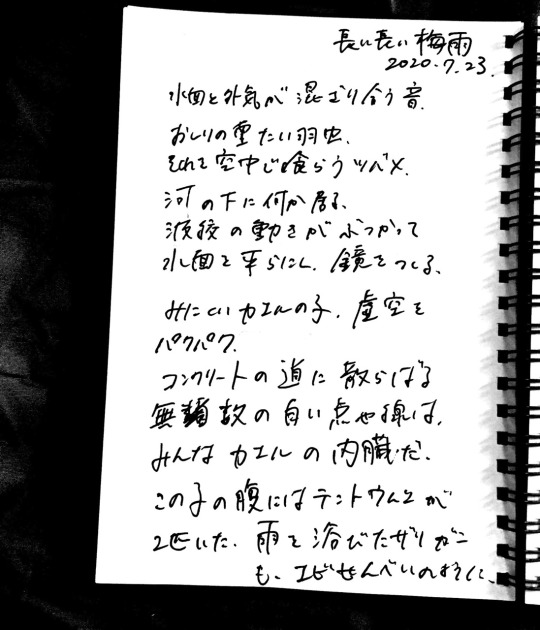 長い長い梅雨
2020.7.23.
水面と外気が混ざり合う音.
おしりの重たい羽虫、
それを空中で喰らうツバメ.
河の下に何か居る、
波の動きがぶつかって
水面を平らにし、鏡をつくる、
みにくいカエルの子、虚空を
パクパク.
コンクリートの道に散らばる
無数の白い点や線は、
みんなカエルの内臓だ、
この子の腹にはテントウムシが
2匹いた、雨を浴びたザリガニ
も、エビせんべいのように、